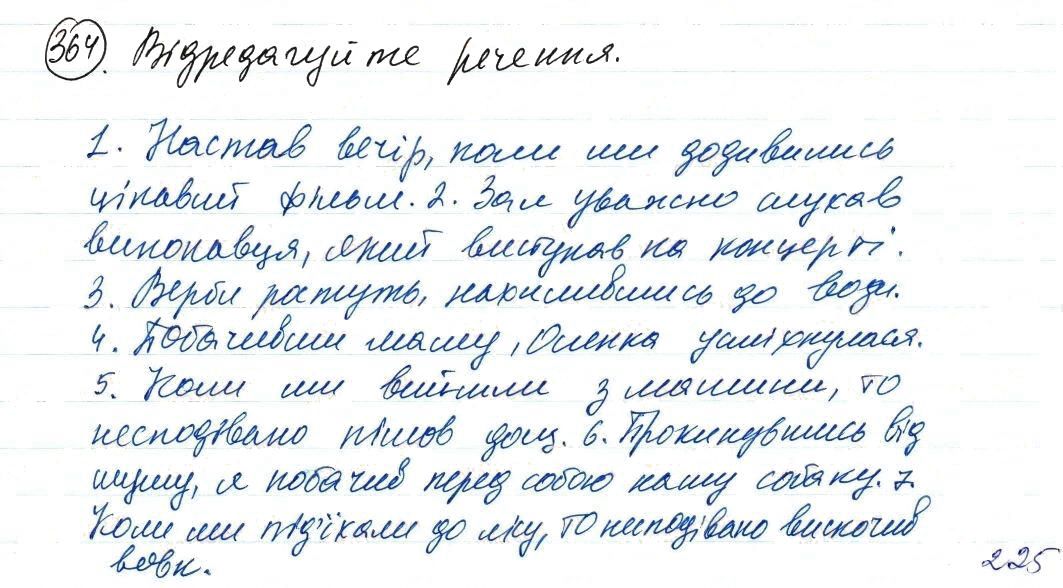 364. Відредагуйте речення.
1. Настав вечір, коли ми додивились
цікавий фільм. 2. Зал уважно слухав
виконавця, який виступав на концерті.
3. Верби ростуть, нахилившись до води.
4. Побачивши маму, Оленка усміхнулася.
5. Коли ми вийшли з машини, то
несподівано пішов дощ. 6. Прокинувшись від
шуму, я побачив перед собою нашу собаку. 7.
Коли ми під'їхали до лісу, то несподівано вискочив
вовк.
225